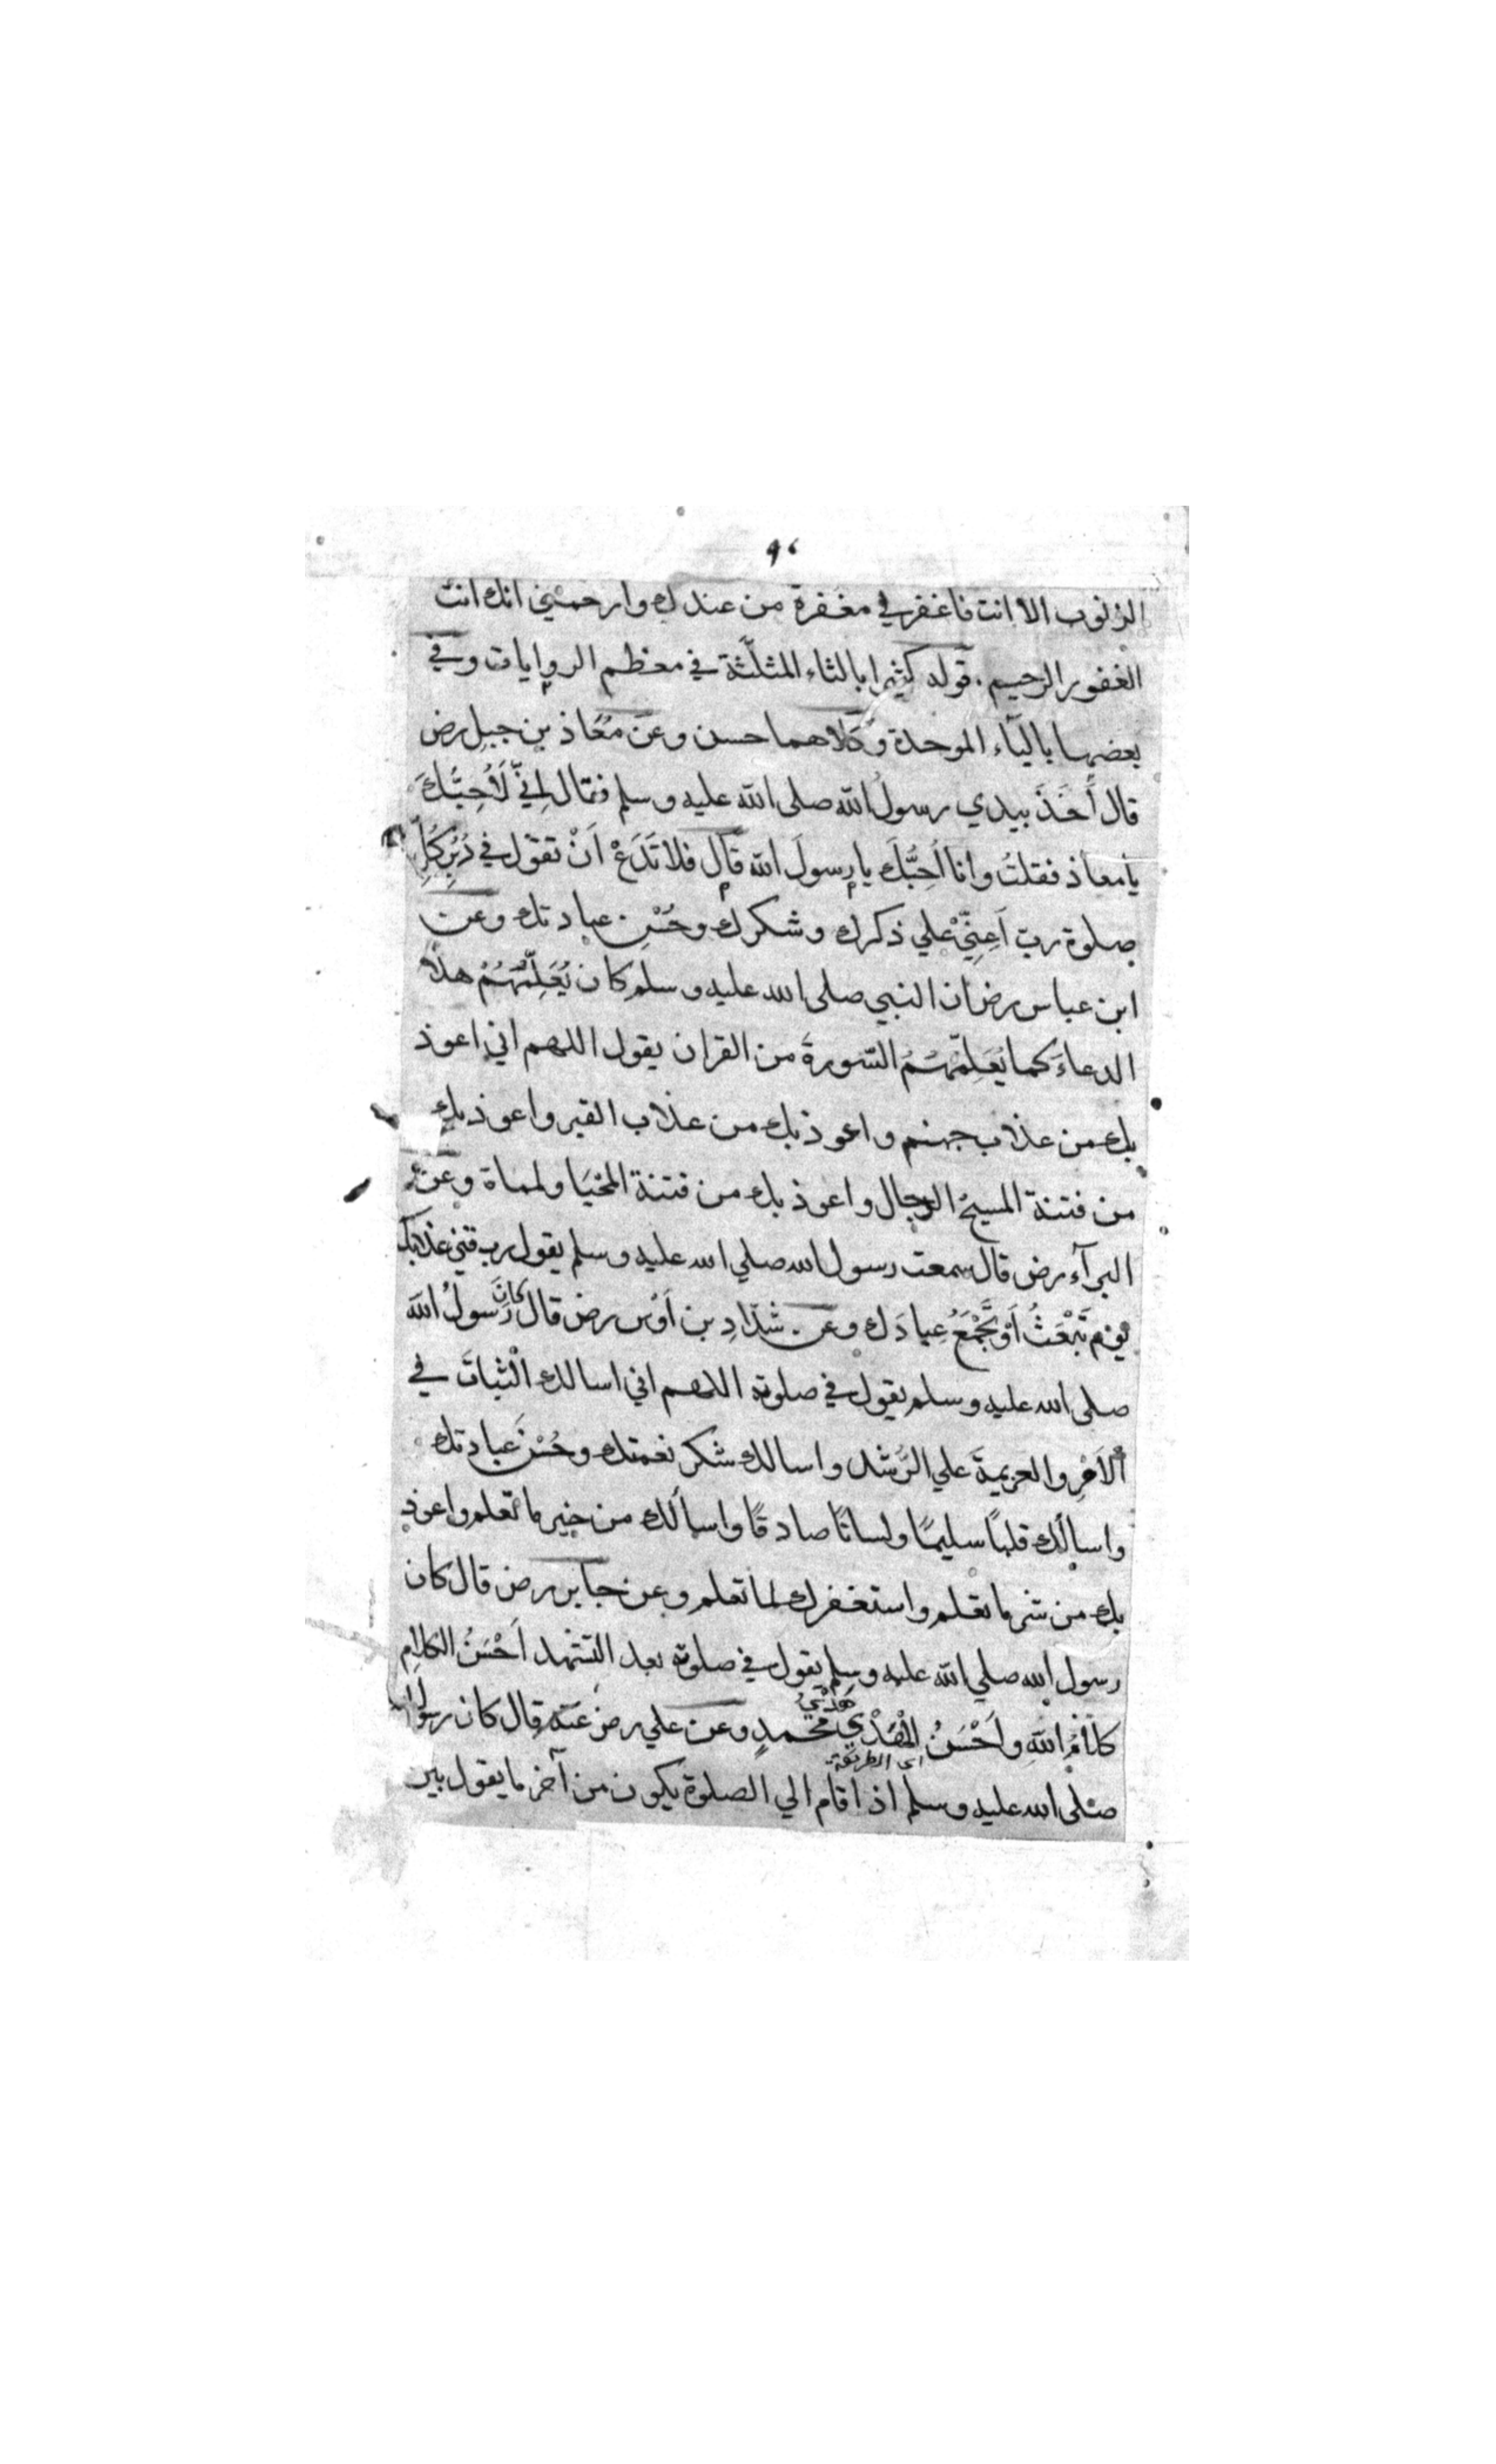 الذنوب الا انت فاغفر لي مغفرة من عندك وارحمني انك انت
الغفور الرحيم . قوله كثيرا بالثاء المثلّثة في معظم الروايات وفي
بعضها بالبآء الموحدة وكلاهما حسن وعن مُعاذ بن جبل رض
قال أَخَذَ بيدي رسولُ الله صلى الله عليه وسلم فقال اِنّي لَأُحِبُّكَ
يا معاذ فقلتُ وانا اُحِبُّكَ يا رسولَ الله قال فلا تَدَعْ اَنْ تقول في دُبُرِ كُلِّ
صلوة رب اَعِنّيْ علي ذكرك وشكرك وحُسْنِ عبادتك وعن
ابن عباس رض ان النبي صلى الله عليه وسلم كان يُعَلِّمُهُمْ هذا
الدعاءَ كما يُعَلِّمُهُمُ السّورةَ من القران يقول اللهم اني اعوذ
بك من عذاب جهنم واعوذ بك من عذاب القبر واعوذ بك
من فتنة المسيح الدجال واعوذ بك من فتنة المَحْيَا ولمماة وعن
البرآء رض قال سمعت رسول الله صلي الله عليه وسلم يقول رب قني عذابك
يوم تَبْعَثُ اَوْ تَجْمَعُ عِبادَك وعن شدّادِ بن اَوْس رض قال كانَ رَسولُ الله
صلى الله عليه وسلم يقول في صلوته اللهم اني اسالك الْثباتَ في
الْاَمْرِ والعزيمةَ علي الرُشد واسالك شكر نعمتك وحُسْنَ عبادتك
واسالك قلبًا سليمًا ولسانًا صادقًا واسألك من خير ما تعلم واعوذ
بك من شر ما تعلم واستغفرك لما تعلم وعن جابر رض قال كان
رسول الله صلي الله عليه وسلم يقول في صلوة بعد التشهد اَحْسَنُ الكلامِ
كلامُ اللهِ واَحْسَنُ الْهَدْيِ هَدْيُ محمدٍ وعن علي رض عنه قال كان رسول الله
اى الطريقة
صلى الله عليه وسلم اذا قام الي الصلوة يكون من آخر ما يقول بين